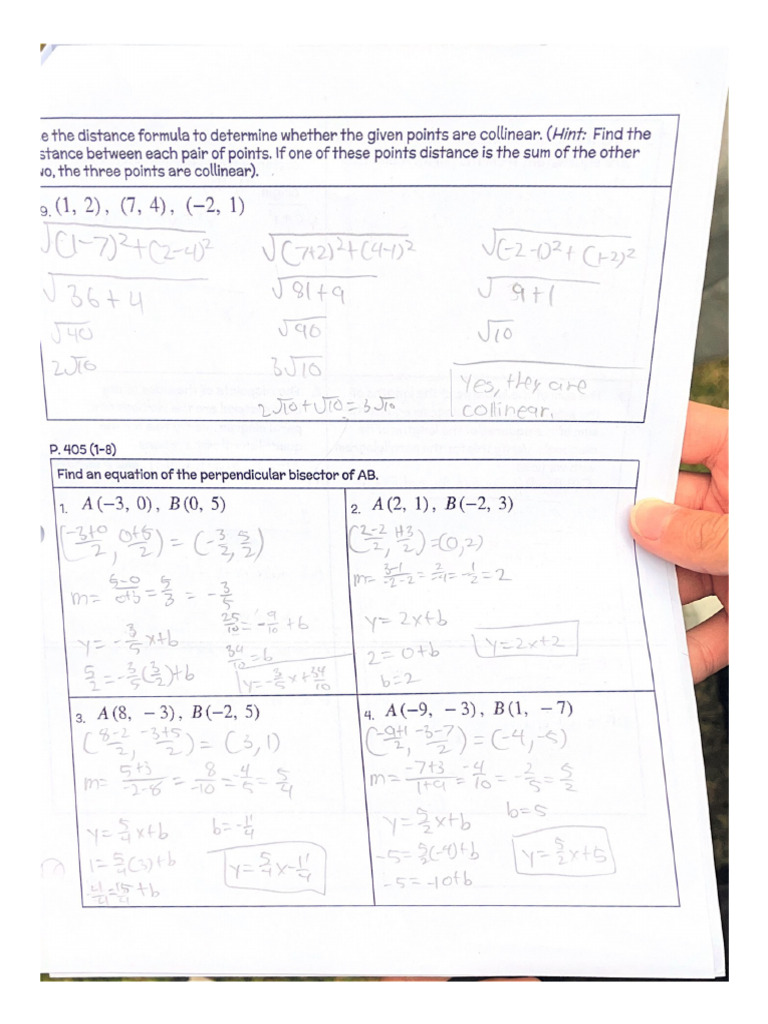 e the distance formula to determine whether the given points are collinear. (Hint: Find the
stance between each pair of points. If one of these points distance is the sum of the other
wo, the three points are collinear).
9. (1, 2), (7, 4), (−2, 1)
√(1-7)²+(2-4)² √(7+2)²+(4-1)² √(-2-1)²+(1-2)²
√36+4 √81+9 √9+1
√40 √90 √10
2√10 3√10
2√10+√10=3√10
Yes, they are
collinear.
P. 405 (1-8)
Find an equation of the perpendicular bisector of AB.
1. A(−3, 0), B(0, 5)
(-3+0/2, 0+5/2) = (-3/2, 5/2)
m= 5-0/0+3 = 5/3 = -3/5
y= -3/5x+b
5/2=-3/5(3/2)+b
25/10=-9/10+b
34/10=b
y=-3/5x+34/10
2. A(2, 1), B(−2, 3)
(2-2/2, 1+3/2)=(0,2)
m= 3-1/-2-2 = 2/-4 = -1/2 = 2
y= 2x+b
2=0+b
b=2
y=2x+2
3. A(8, −3), B(−2, 5)
(8-2/2, -3+5/2) = (3,1)
m= 5+3/-2-8 = 8/-10 = -4/5 = 5/4
y= 5/4x+b
1=5/4(3)+b
4/4=15/4+b
b=-11/4
y=5/4x-11/4
4. A(−9, −3), B(1, −7)
(-9+1/2, -3-7/2) = (-4,-5)
m= -7+3/1+9 = -4/10 = -2/5 = 5/2
y= 5/2x+b
-5= 5/2(-4)+b
-5=-10+b
b=5
y=5/2x+5